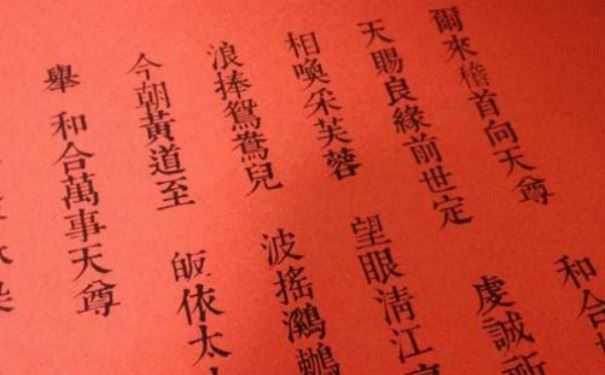 爾來稽首向天尊 和合
天賜良緣前世定 虔誠祈
相喚采芙蓉 望眼清江
浪捧鴛鴦兒 波搖鸂
今朝黃道至 皈依太
舉 和合萬事天尊